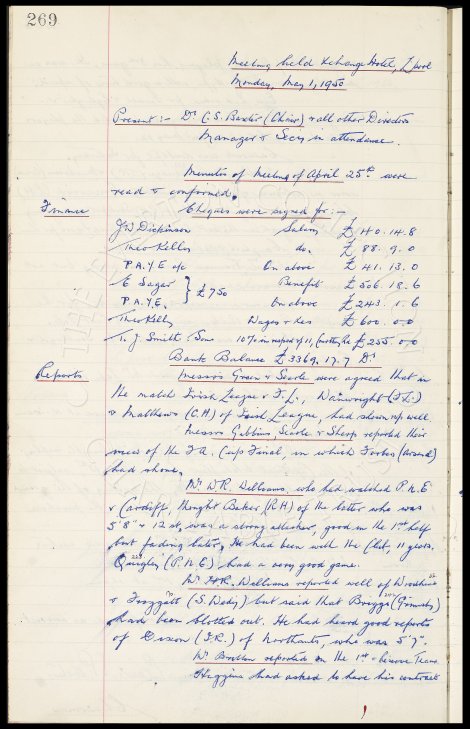 269
Meeting held Xchange Hotel, L'pool
Monday, May 1, 1950
Present :- Dr C.S. Baxter (Chair) & all other Directors
Manager & Secy in attendance.
Minutes of Meeting of April 25th were
read & confirmed.
Finance Cheques were signed for :-
J W Dickinson Salary £140.14.8
Theo Kelly do. £88.9.0
P.A.Y.E a/c On above £41.13.0
E Sagar } £750 Benefit £506.18.6
P.A.Y.E. On above £243.1.6
Theo Kelly Wages & Xes £600.0.0
T. J. Smith & Son 10% in respect of £255.0.0
Bank Balance £3369.17.7 Dr
Reports Messrs Green & Searle were agreed that in
the match Irish League v F.L., Wainwright (F.L.)
& Matthews (C.H) of Irish League, had shown up well.
Messrs Gibbins, Searle & Sharp reported their
views of the F.A. Cup Final, in which Forbes (Arsenal)
had shone.
Mr W.R. Williams, who had watched P.N.E
v Cardiff, thought Baker (R.H) of the latter who was
5'8" & 12 st, was a strong attacker, good in the 1st half
but fading later. He had been with the Club, 11 years.
Quigley (P.N.E) had a very good game.
Mr H.R. Williams reported well of
& Froggatt (S. Wedy) but said that Briggs (Grimsby)
had been blotted out. He had heard good reports
of Dixon (I.R.) of Northants, who was 5'7".
Mr Britton reported on the 1st & Reserve Teams
Higgins had asked to have his contract